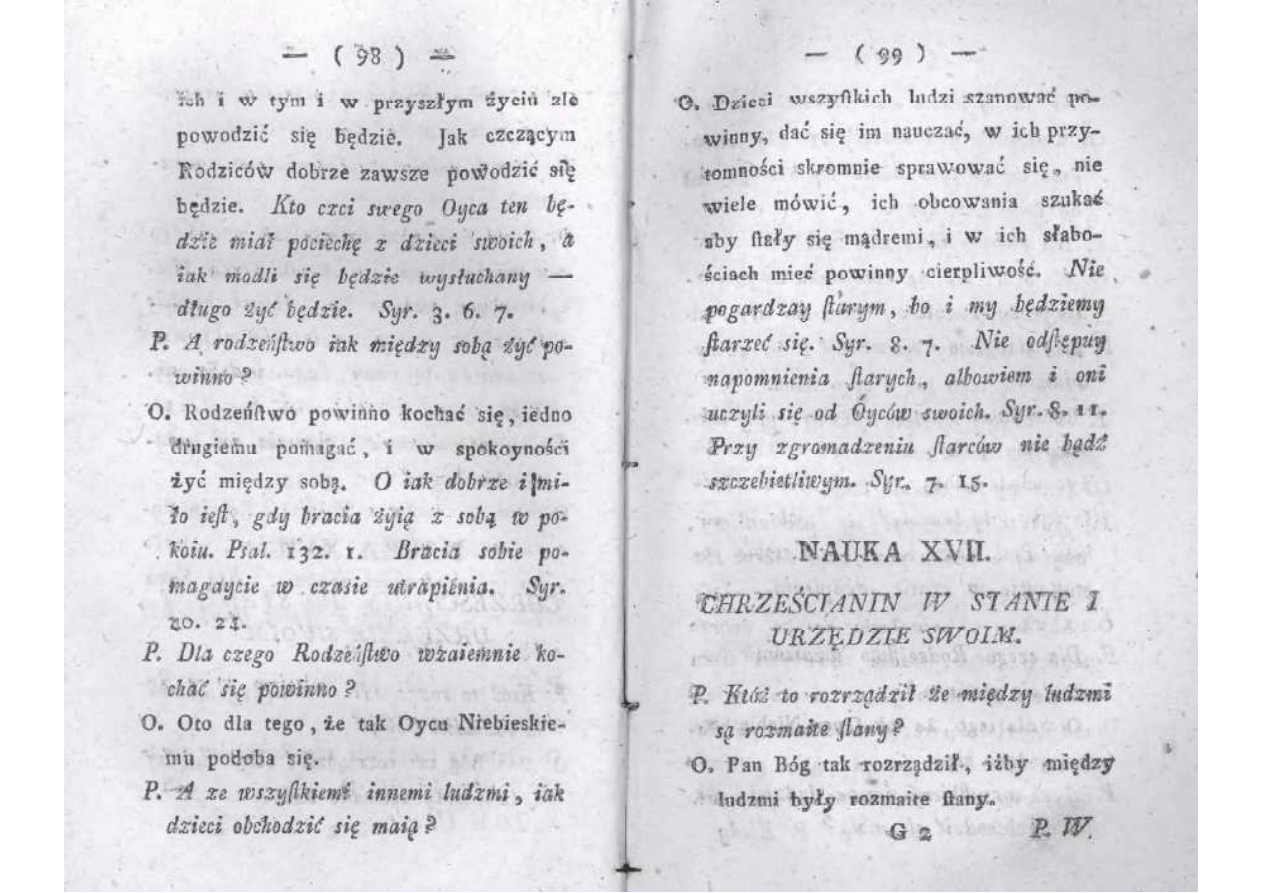 — ( 98 ) —
ich i w tym i w przyszłym życiu źle
powodzić się będzie. Jak czczącym
Rodziców dobrze zawsze powodzić się
będzie. Kto czci swego Oyca ten bę-
dzie miał pociechę z dzieci swoich, a
iak modli się będzie wysłuchany —
długo żyć będzie. Syr. 3. 6. 7.
P. A rodzeńſtwo iak między sobą żyć po-
winno?
O. Rodzeńſtwo powinno kochać się, iedno
drugiemu pomagać, i w spokoyności
żyć między sobą. O iak dobrze i mi-
ło ieſt, gdy bracia żyią z sobą w po-
koiu. Psal. 132. 1. Bracia sobie po-
magaycie w czasie utrapienia. Syr.
20. 21.
P. Dla czego Rodzeńſtwo wzaiemnie ko-
chać się powinno?
O. Oto dla tego, że tak Oycu Niebieskie-
mu podoba się.
P. A ze wszyſtkiemi innemi ludzmi, iak
dzieci obchodzić się maią?
— ( 99 ) —
O. Dzieci wszyſtkich ludzi szanować po-
winny, dać się im nauczać, w ich przy-
tomności skromnie sprawować się, nie
wiele mówić, ich obcowania szukać
aby ſtały się mądremi, i w ich słabo-
ściach mieć powinny cierpliwość. Nie
pogardzay ſtarym, bo i my będziemy
ſtarzeć się. Syr. 8. 7. Nie odſtępuy
napomnienia ſtarych, albowiem i oni
uczyli się od Oyców swoich. Syr. 8. 11.
Przy zgromadzeniu ſtarców nie bądź
szczebietliwym. Syr. 7. 15.
NAUKA XVII.
CHRZEŚCIANIN W STANIE I
URZĘDZIE SWOIM.
P. Któż to rozrządził że między ludzmi
są rozmaite ſtany?
O. Pan Bóg tak rozrządził, iżby między
ludzmi były rozmaite ſtany.
G 2 P. W.